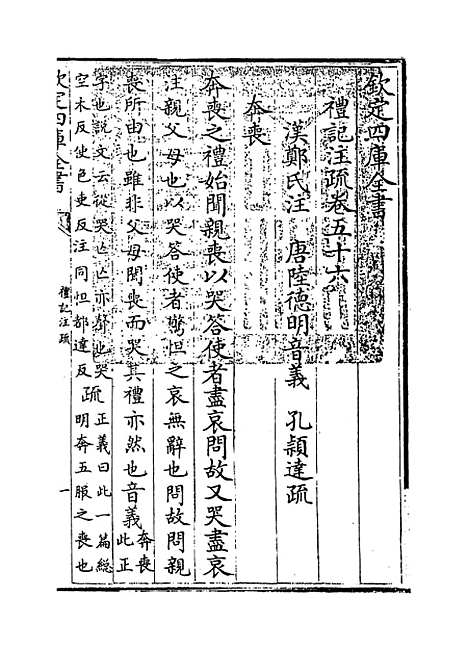 欽定四庫全書
禮記注疏卷五十六
漢鄭氏注 唐陸德明音義 孔穎達疏
奔喪
奔喪之禮始聞親喪以哭答使者盡哀問故又哭盡哀
注親父母也以哭答使者驚怛之哀無辭也問故問親
喪所由也雖非父母聞喪而哭其禮亦然也音義奔喪此正
字也說文云從哭亡亡亦聲也哭
空木反使色吏反注同怛都達反疏正義曰此一篇總
明奔五服之喪也
欽定四庫全書
禮記注疏
一